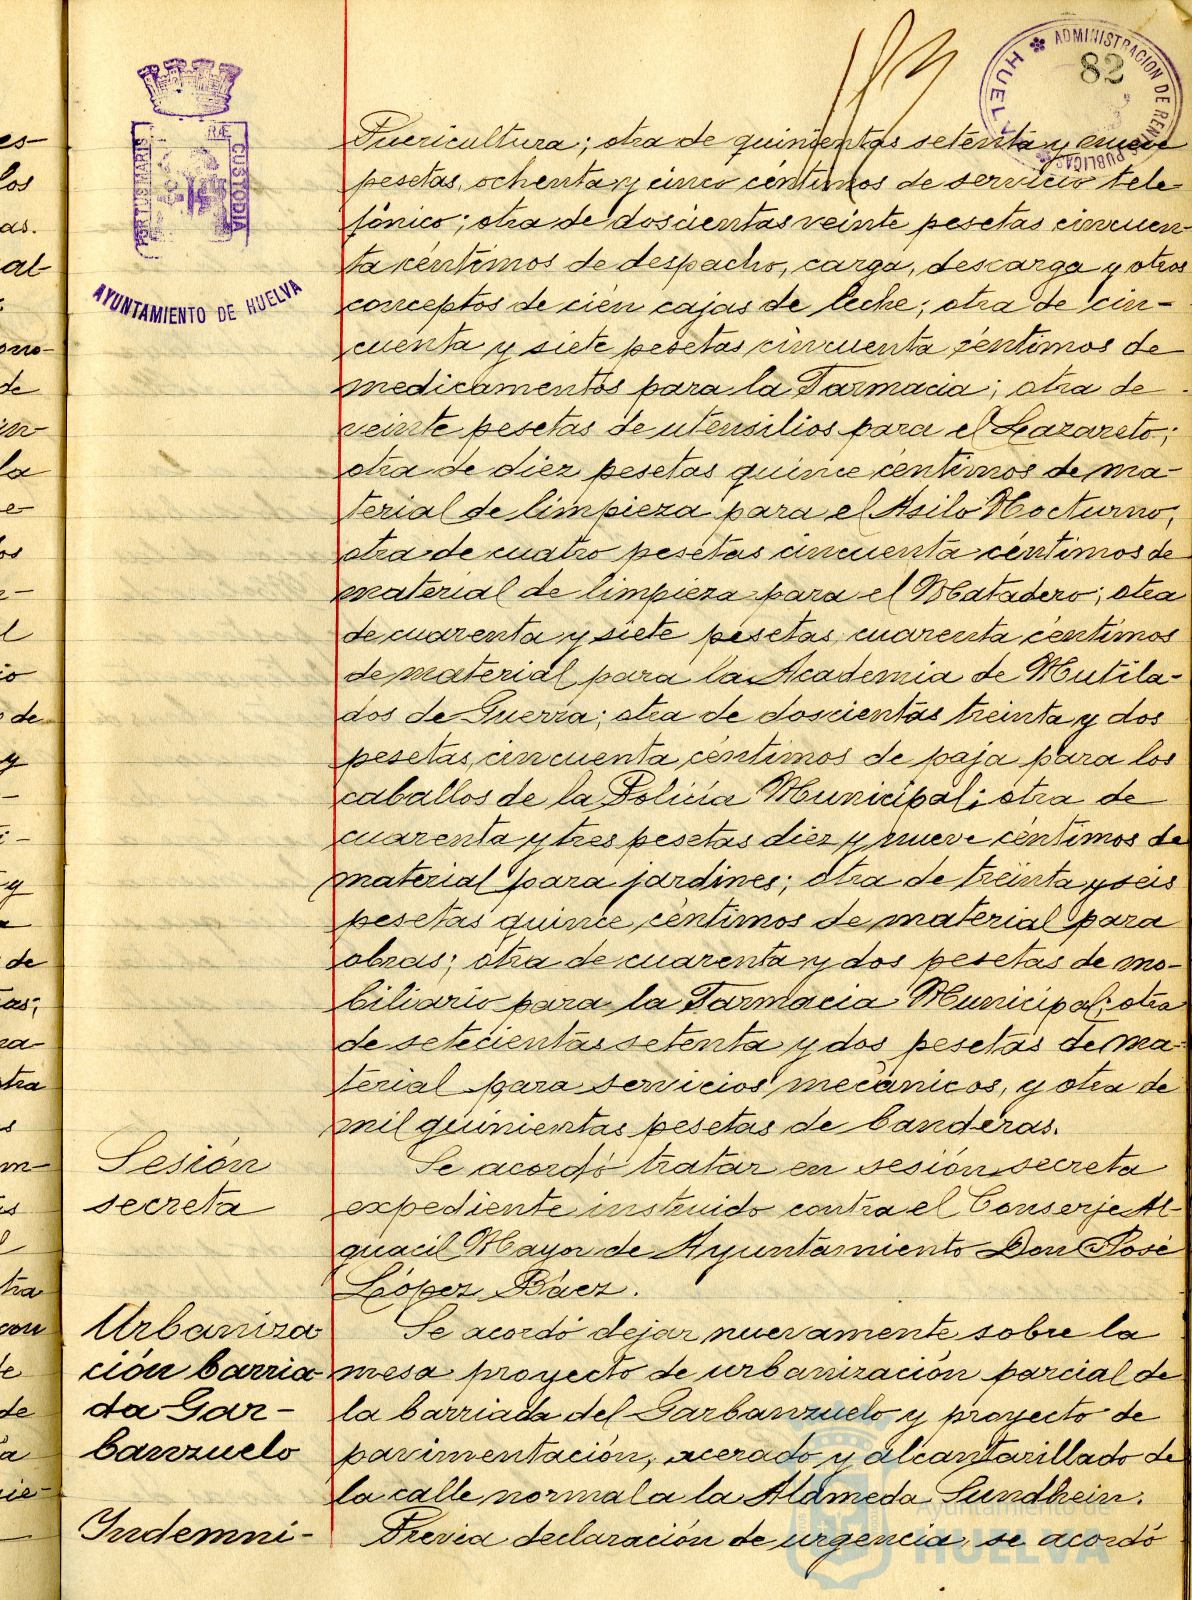 82
ADMINISTRACION DE RENTAS PUBLICAS
HUELVA
PORTUS MARIS
CUSTODIA
AYUNTAMIENTO DE HUELVA
Puericultura; otra de quinientas setenta y nueve
pesetas, ochenta y cinco céntimos de servicio tele-
fónico; otra de doscientas veinte pesetas cincuen-
ta céntimos de despacho, carga, descarga y otros
conceptos de cien cajas de leche; otra de cin-
cuenta y siete pesetas cincuenta céntimos de
medicamentos para la Farmacia; otra de
veinte pesetas de utensilios para el Lazareto;
otra de diez pesetas quince centimos de ma-
terial de limpieza para el Asilo Nocturno;
otra de cuatro pesetas cincuenta céntimos de
material de limpieza para el Matadero; otra
de cuarenta y siete pesetas, cuarenta céntimos
de material para la Academia de Mutila-
dos de Guerra; otra de doscientas treinta y dos
pesetas, cincuenta céntimos de paja para los
caballos de la Policía Municipal; otra de
cuarenta y tres pesetas diez y nueve céntimos de
material para jardines; otra de treinta y seis
pesetas quince céntimos de material para
obras; otra de cuarenta y dos pesetas de mo-
biliario para la Farmacia Municipal; otra
de setecientas setenta y dos pesetas de ma-
terial para servicios mecánicos, y otra de
mil quinientas pesetas de banderas.
Sesión
secreta
Se acordó tratar en sesión secreta
expediente instruido contra el Conserje Al-
guacil Mayor de Ayuntamiento Don José
López Báez.
Urbaniza
ción barria
da Gar-
banzuelo
Se acordó dejar nuevamente sobre la
mesa proyecto de urbanización parcial de
la barriada del Garbanzuelo y proyecto de
pavimentación, acerado y alcantarillado de
la calle normal a la Alameda Sundhein.
Indemni-
Previa declaración de urgencia, se acordó
Ayuntamiento de
HUELVA